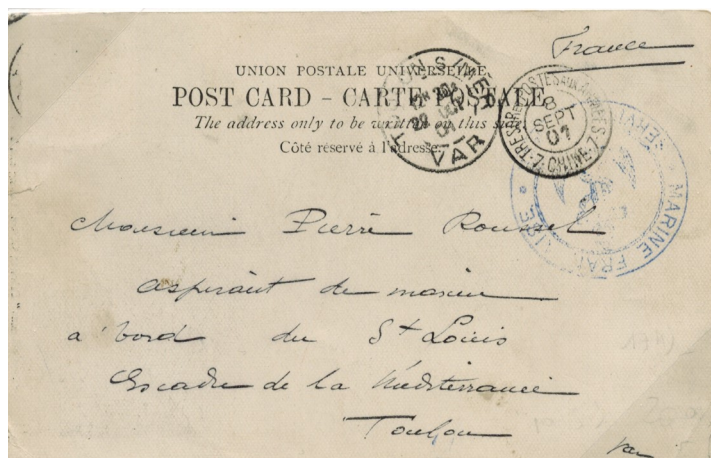 France
UNION POSTALE UNIVERSELLE
POST CARD – CARTE POSTALE
The address only to be written on this side.
Côté réservé à l'adresse.
TRESOR ET POSTES AUX ARMEES
8
SEPT
01
CHINE
VAR
MARINE FRANÇAISE
Monsieur Pierre Roussel
aspirant de marine
à bord du St Louis
Escadre de la Méditerranée
Toulon
Var